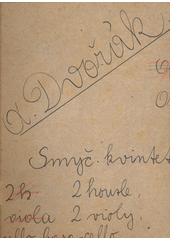 A. Dvořák
Smyč. kvintet
2 h 2 housle,
viola 2 violy,